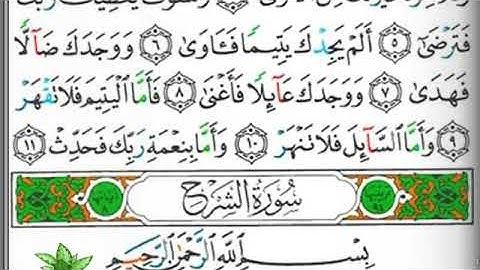 فَتَرْضَىٰٓ ٥ أَلَمْ يَجِدْكَ يَتِيمًا فَـَٔاوَىٰ ٦ وَوَجَدَكَ ضَآلًّا
فَهَدَىٰ ٧ وَوَجَدَكَ عَآئِلًا فَأَغْنَىٰ ٨ فَأَمَّا ٱلْيَتِيمَ فَلَا تَقْهَرْ
٩ وَأَمَّا ٱلسَّآئِلَ فَلَا تَنْهَرْ ١٠ وَأَمَّا بِنِعْمَةِ رَبِّكَ فَحَدِّثْ ١١
سُورَةُ الشَّرْحِ
بِسْمِ ٱللَّهِ ٱلرَّحْمَٰنِ ٱلرَّحِيمِ